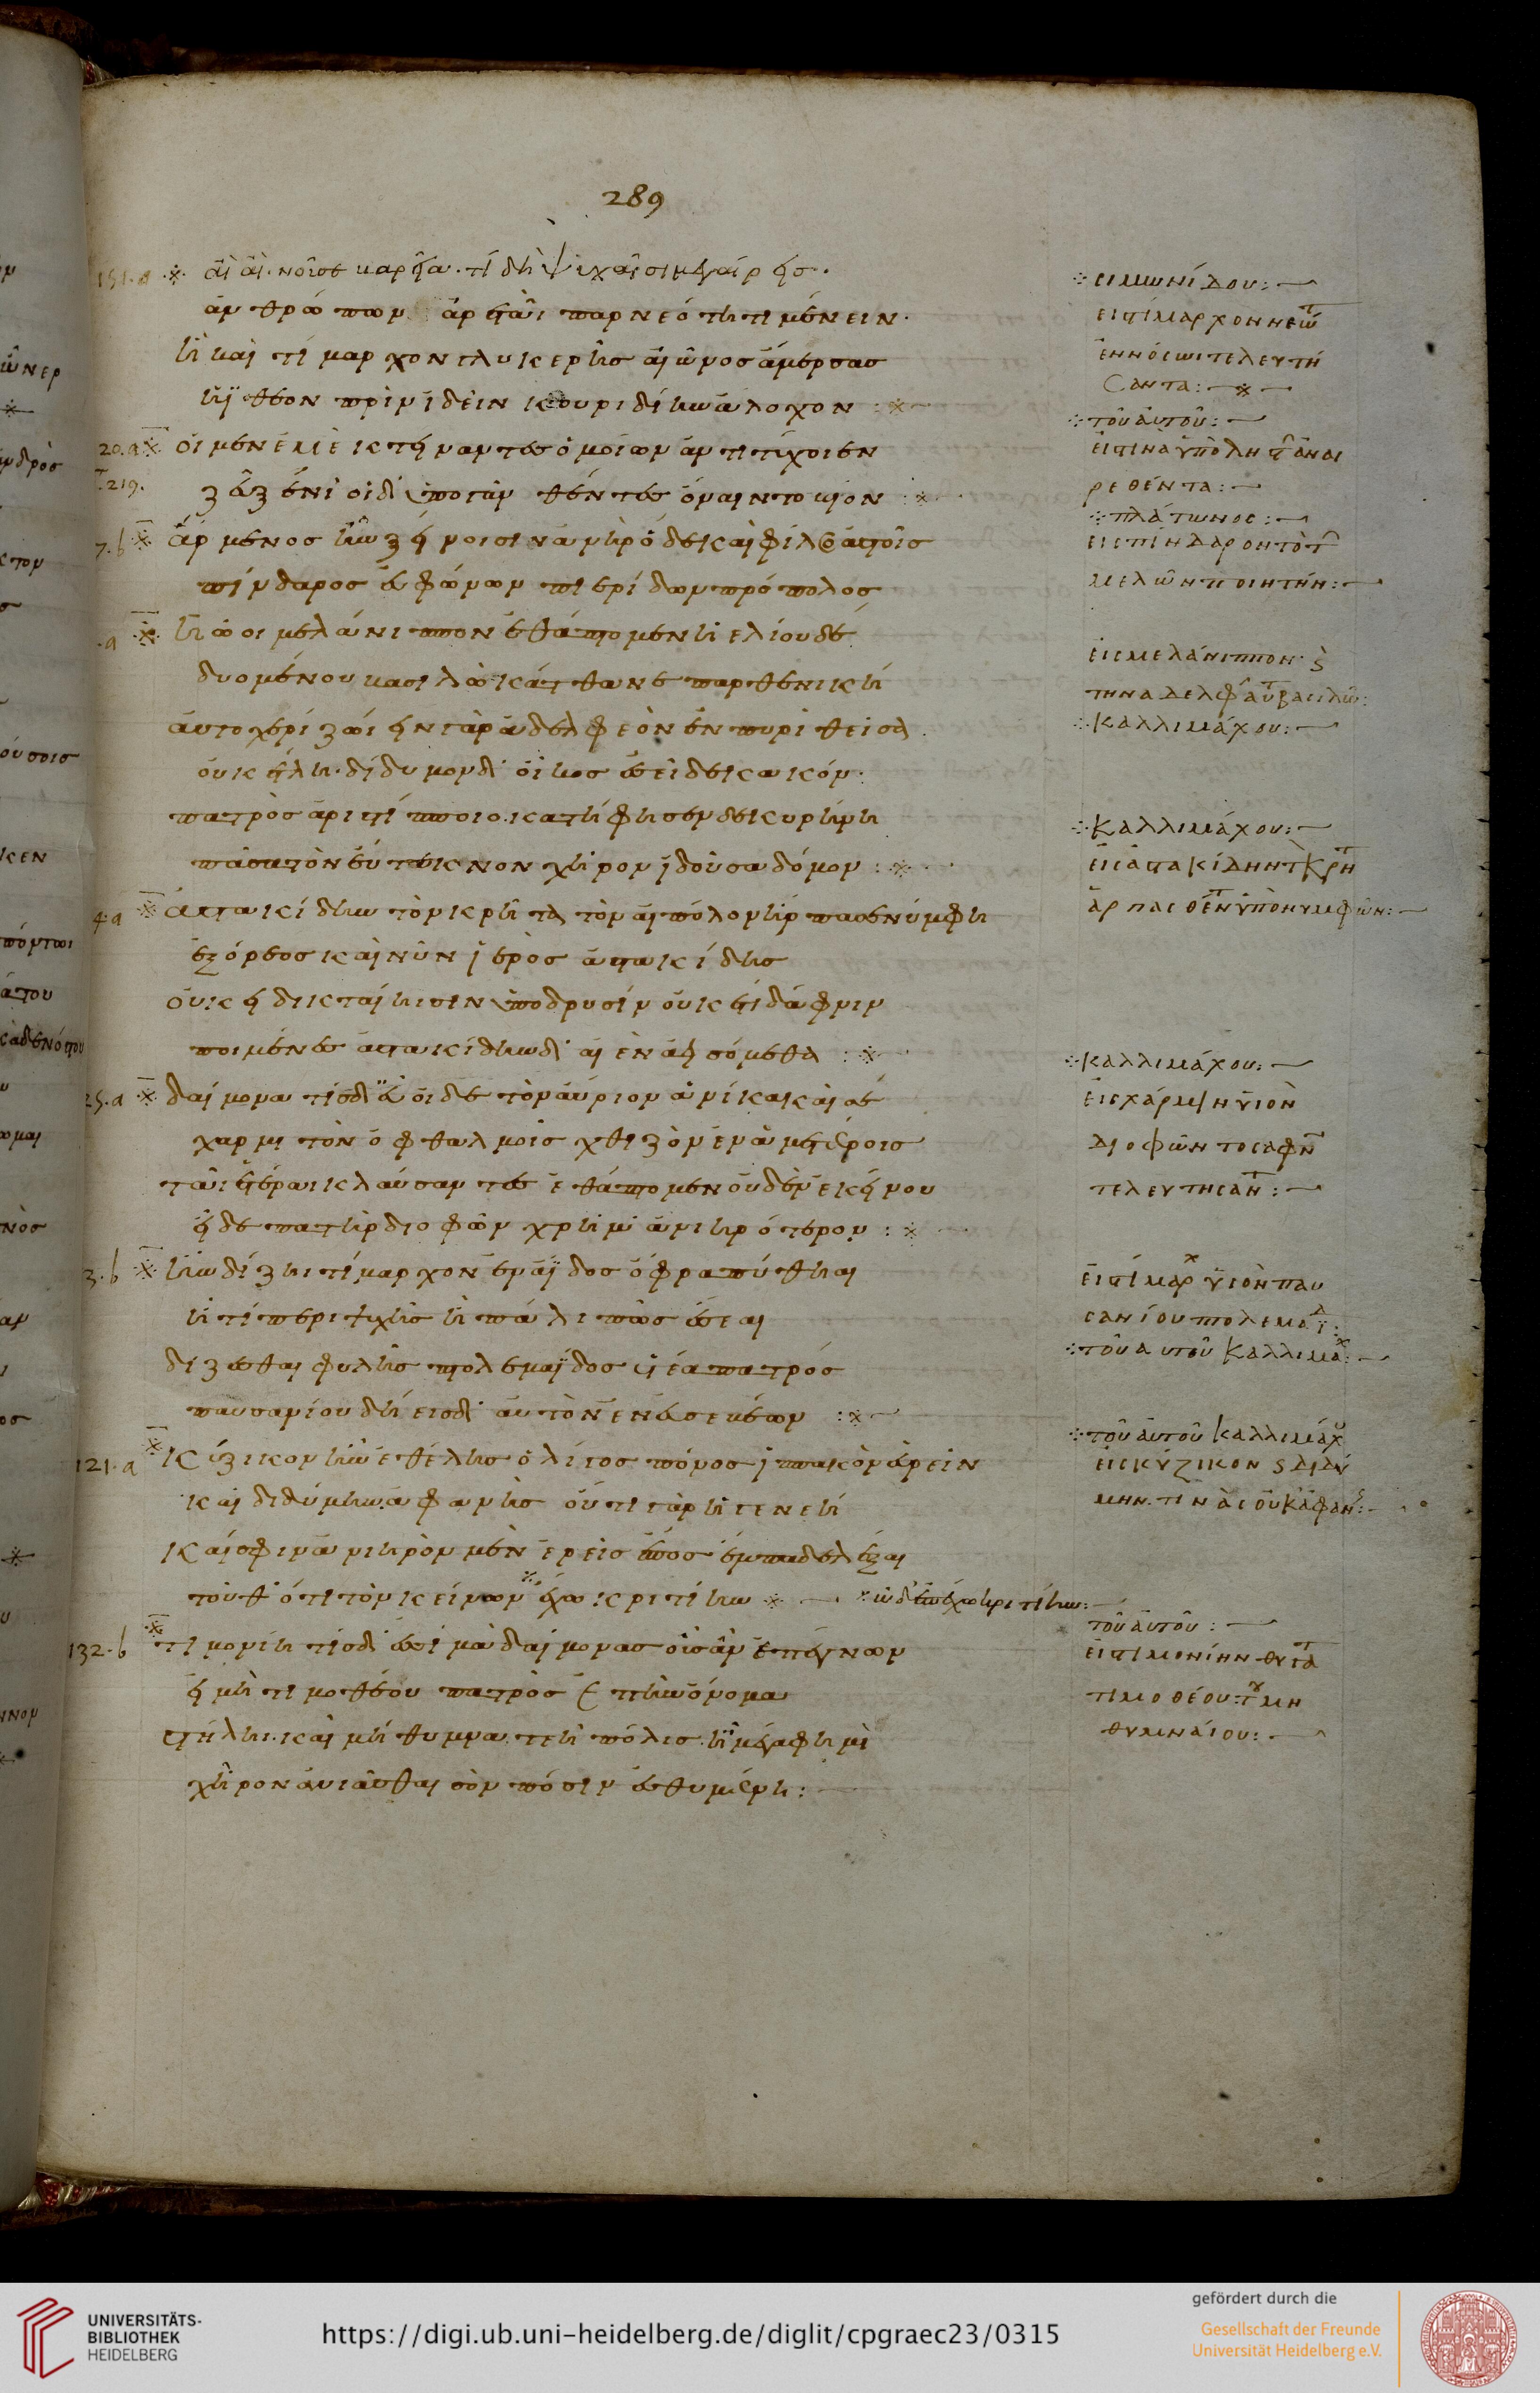 289
151.a ※ αἶ αἶ νοῦσε βαρεῖα· τί δὴ ψυχαῖσι μεγαίρεις·
ἀνθρώπων ἐρατᾶι παρ νεότητι μένειν·
ἣ καὶ τίμαρχον γλυκερῆς αἰῶνος ἄμερσας
ἠΐθεον πρὶν ἰδεῖν κουριδίην ἄλοχον :※
20.a ※ οἱ μὲν ἐμὲ κτείναντες ὁμοίων ἀντιτύχοιεν
219.
ζεῦ ξένι' οἱ δ' ὑπὸ γᾶν θέντες ὄναιντο βίον :※
7.b ※ ἄρμενος ἦν ξείνοισιν ἀνὴρ ὅδε καὶ φίλος ἀστοῖς
πίνδαρος εὐφώνων πιερίδων πρόπολος
.a ※ ἠῶοι μελάνιππον ἐθάπτομεν ἠελίου δὲ
δυομένου βασιλὼ κάτθανε παρθενικὴ
αὐτοχερί· ζώειν γὰρ ἀδελφεὸν ἐν πυρὶ θεῖσα
οὐκ ἔτλη· δίδυμον δ' οἶκος ἐσεῖδε κακόν·
πατρὸς ἀριστίπποιο· κατήφησεν δὲ κυρήνη
πᾶσα τὸν εὔτεκνον χῆρον ἰδοῦσα δόμον :※
4.a ※ ἀστακίδην τὸν κρῆτα τὸν αἰπόλον ἥρπασε νύμφη
ἐξ ὄρεος καὶ νῦν ἱερὸς ἀστακίδης
οὐκέτι δικταίηισιν ὑπὸ δρυσὶν οὐκέτι δάφνιν
ποιμένες ἀστακίδην δ' αἰὲν ἀεισόμεθα :※
25.a ※ δαίμονα τίς δ' εὖ οἶδε τὸν αὔριον ἁνίκα καὶ σὲ
χαρμι τὸν ὀφθαλμοῖς χθιζὸν ἐν ἀμετέροις
τᾶι ἑτέραι κλαύσαντες ἐθάπτομεν οὐδὲν ἐκείνου
εἶδε πατὴρ διοφῶν χρῆμ' ἀνιηρότερον :※
3.b ※ ἢν δίζηι τίμαρχον ἐν ἄϊδος ὄφρα πύθηαι
ἤ τι περὶ ψυχῆς ἢ πάλι πῶς ἔσεαι
δίζεσθαι φυλῆς πτολεμαΐδος υἱέα πατρός
παυσανίου δήεις δ' αὐτὸν ἐν εὐσεβέων :※
121.a ※ κύζικον ἢν ἐθέληις ὀλίγος πόνος ἱππακὸν εὑρεῖν
καὶ διδύμην ἀφανὴς οὔτι γὰρ ἡ γενεή
καί σφιν ἀνιηρὸν μὲν ἐρεῖς ἔπος ἔμπα δὲ λέξαι
τοῦθ' ὅτι τὸν κείνων ※ ἔχω κριτίην ※ — ※ ὧδ' ἐπέχω κριτίην:
132.b ※ τιμονίη τίς δ' ἐσσὶ μὰ δαίμονας οὔ σ' ἂν ἐπέγνων
εἰ μὴ τιμοθέου πατρὸς ἐπῆν ὄνομα
στήληι καὶ μήθυμνα τεὴ πόλις· ἦ μέγα φημὶ
χῆρον ἀνιᾶσθαι σὸν πόσιν εὐθυμένη:
※ σιμωνίδου:
εἰς τίμαρχον νεώτ
ἐν νόσωι τελευτή
σαντα: ※
※ τοῦ αὐτοῦ:
εἴς τινα ὑπὸ ληστῶν ἀναι
ρεθέντα:
※ πλάτωνος:
εἰς πίνδαρον τὸν τῶν
μελῶν ποιητήν:
εἰς μελάνιππον· ϛ
τὴν ἀδελφ αὐτ βασιλώ:
※ καλλιμάχου:
※ Καλλιμάχου:
εἰς ἀστακίδην τὸν κρητ
ἁρπασθέντ ὑπὸ νυμφῶν:
※ καλλιμάχου:
εἰς χάρμιν υἱὸν
διοφῶντος ἄφν
τελευτήσαντ:
εἰς τίμαρχ υἱὸν παυ
σανίου πτολεμαΐδ:
※ τοῦ αὐτοῦ Καλλιμάχ:
※ τοῦ αὐτοῦ καλλιμάχου
εἰς κύζικον ϛ διδύ
μην· τινὰς οὐκ ἀφανεῖς:
τοῦ αὐτοῦ:
εἰς τιμονίην θυγατ
τιμοθέου· τοῦ μη
θυμναίου:
UNIVERSITÄTS-
BIBLIOTHEK
HEIDELBERG
https://digi.ub.uni-heidelberg.de/diglit/cpgraec23/0315
gefördert durch die
Gesellschaft der Freunde
Universität Heidelberg e.V.